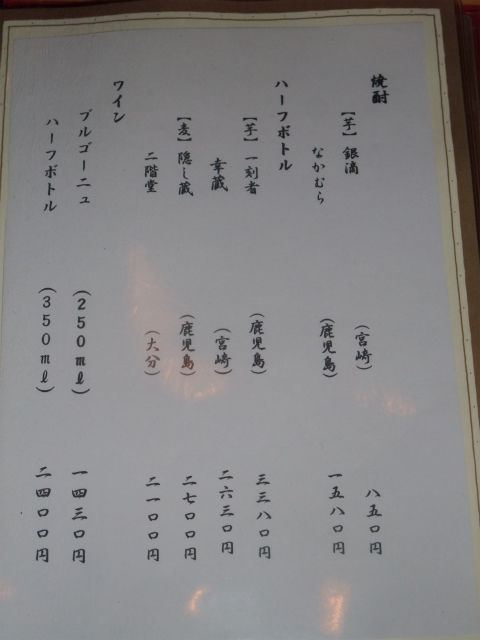 焼酎
【芋】銀滴 （宮崎） 八五〇円
なかむら （鹿児島） 一五八〇円
ハーフボトル
【芋】一刻者 （鹿児島） 三三八〇円
幸蔵 （宮崎） 二六三〇円
【麦】隠し蔵 （鹿児島） 二七〇〇円
二階堂 （大分） 二一〇〇円
ワイン
ブルゴーニュ （２５０ｍℓ） 一四三〇円
ハーフボトル （３５０ｍℓ） 二四〇〇円